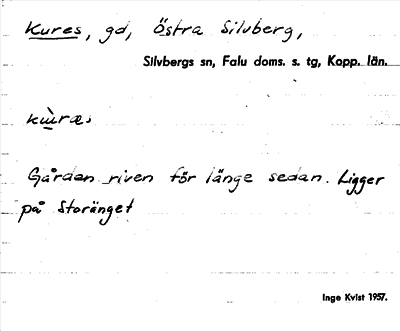 Kures, gd, Östra Silvberg,
Silvbergs sn, Falu doms. s. tg, Kopp. län.
Gården riven för länge sedan. Ligger
på Storänget
Inge Kvist 1957.